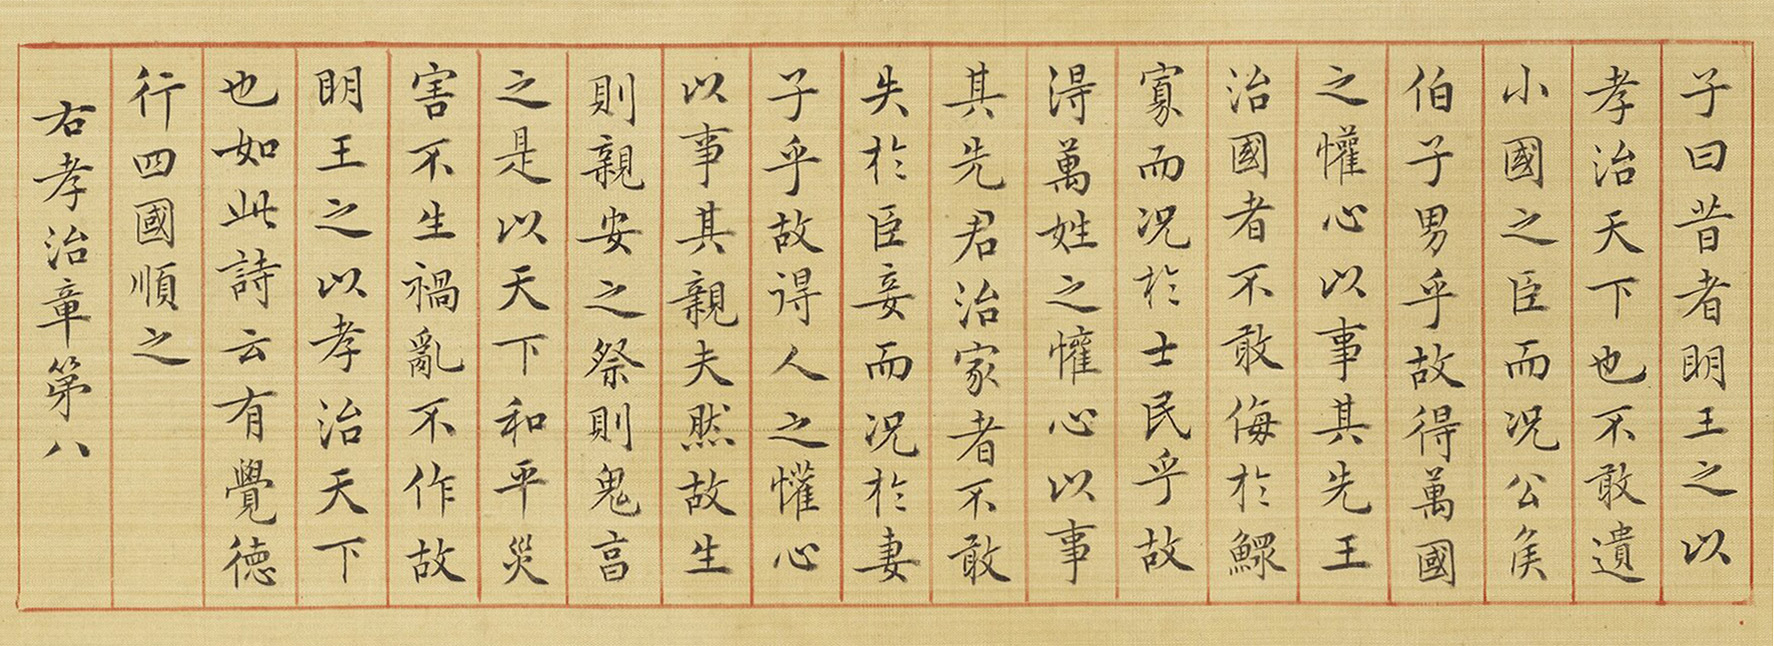 子曰昔者明王之以
孝治天下也不敢遺
小國之臣而况公矦
伯子男乎故得萬國
之懽心以事其先王
治國者不敢侮於鰥
寡而况於士民乎故
淂萬姓之懽心以事
其先君治家者不敢
失於臣妾而况於妻
子乎故得人之懽心
以事其親夫然故生
則親安之祭則鬼亯
之是以天下和平災
害不生禍亂不作故
明王之以孝治天下
也如此詩云有覺德
行四國順之
右孝治章第八